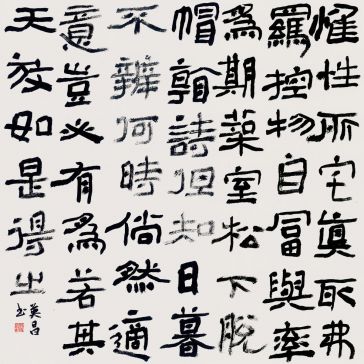 惟性所宅真取弗
羈控物自富與率
為期築室松下脫
帽看詩但知日暮
不辨何時倘然適
意豈必有為若其
天放如是得之
英昌书